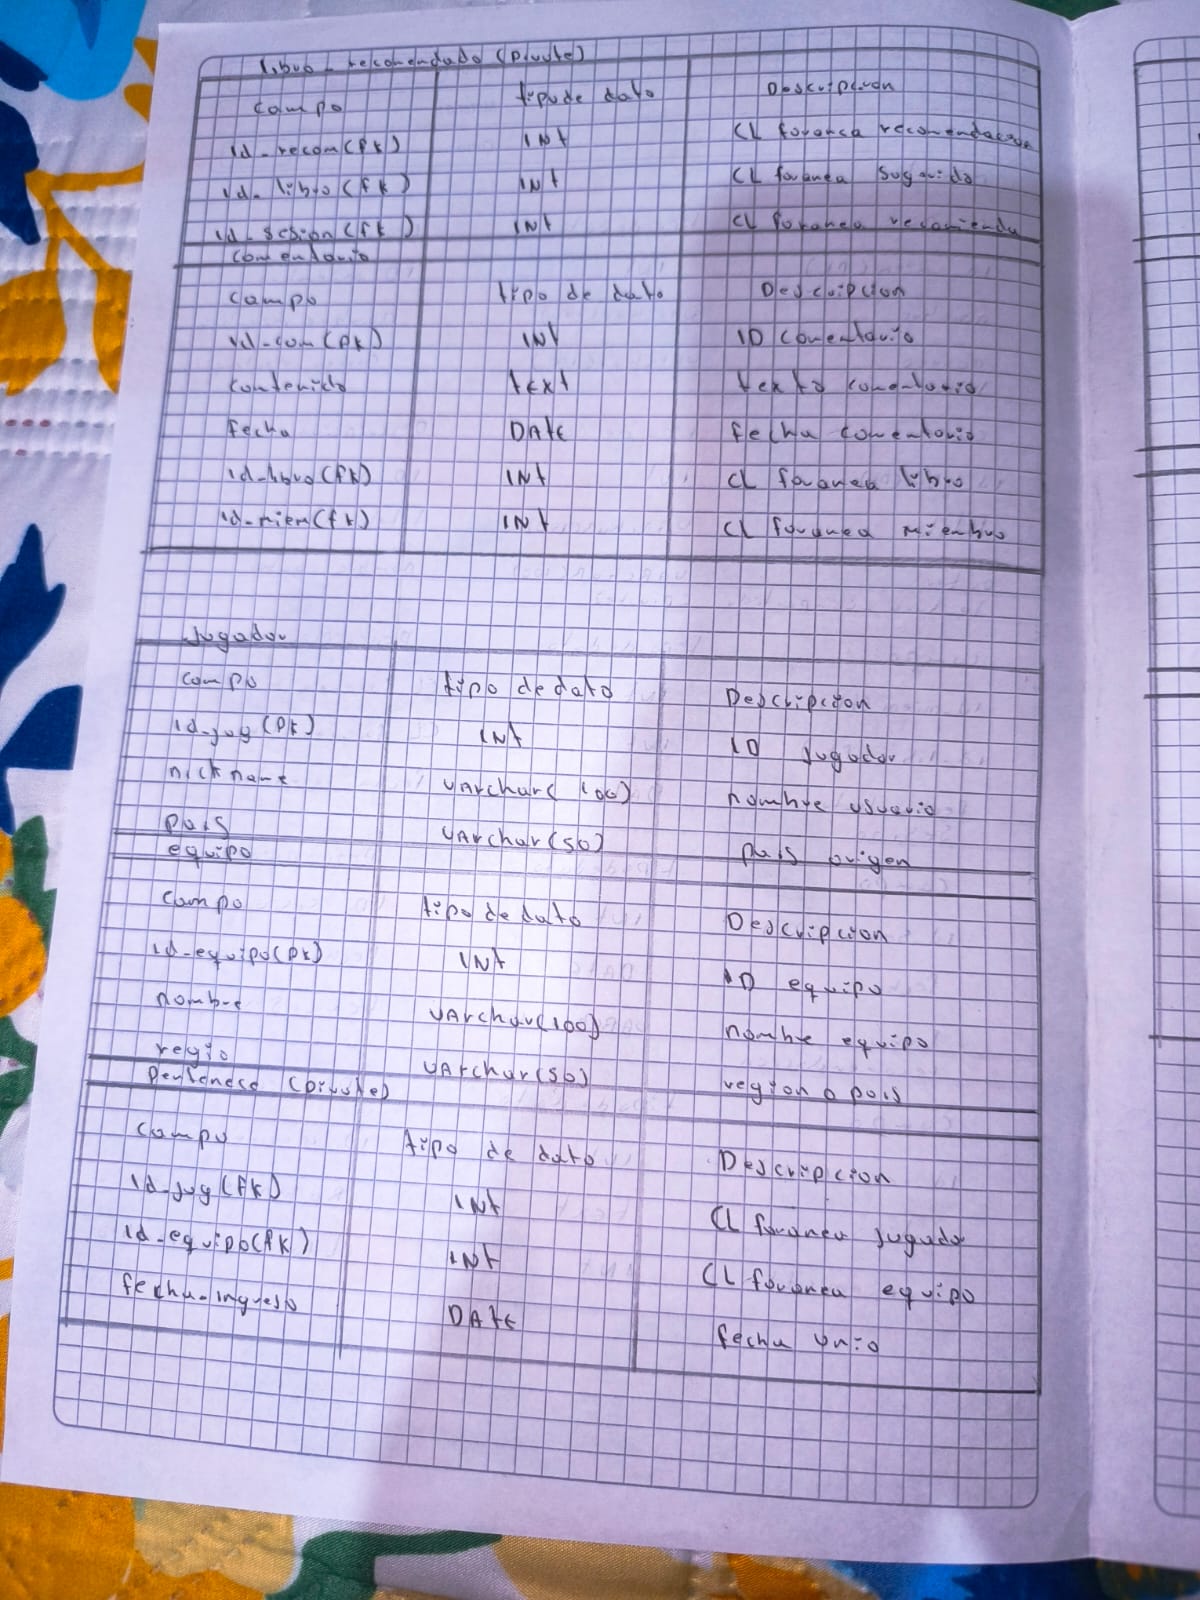 libro_recomendado (pivote)
campo tipo de dato Descripcion
id_recom(fk) INt CL foranea
id_libro(fk) INt CL foranea sugerido
id_sesion(fk) INt CL foranea recomienda
comentario
campo tipo de dato Descripcion
id-com(pk) INt ID comentario
contenido text texto comentario
fecha DAte fecha comentario
id-libro(fk) INt CL foranea libro
id-miem(fk) INt CL foranea miembro
Jugador
campo tipo de dato Descripcion
id-jug(pk) INt ID jugador
nickname VArchar(100) nombre usuario
pais VArchar(50) pais origen
equipo
campo tipo de dato Descripcion
id-equipo(pk) INt ID equipo
nombre VArchar(100) nombre equipo
regio VArchar(50) region o pais
(pivote)
campo tipo de dato Descripcion
id-jug(fk) INt CL foranea jugador
id-equipo(fk) INt CL foranea equipo
fecha-ingreso DAte fecha unio